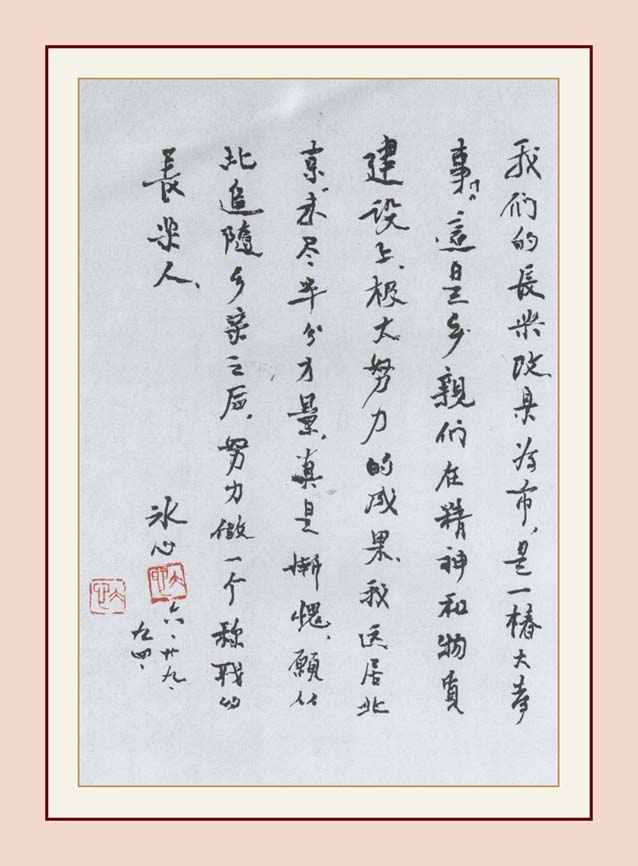 我们的長乐改县为市，是一椿大喜
事，這是乡親们在精神和物質
建设上、极大努力的成果、我远居北
京，未尽半分力量，真是惭愧，願从
此追隨乡亲之后，努力做一个称职的
長乐人、
冰心
六、廿九、
九四、